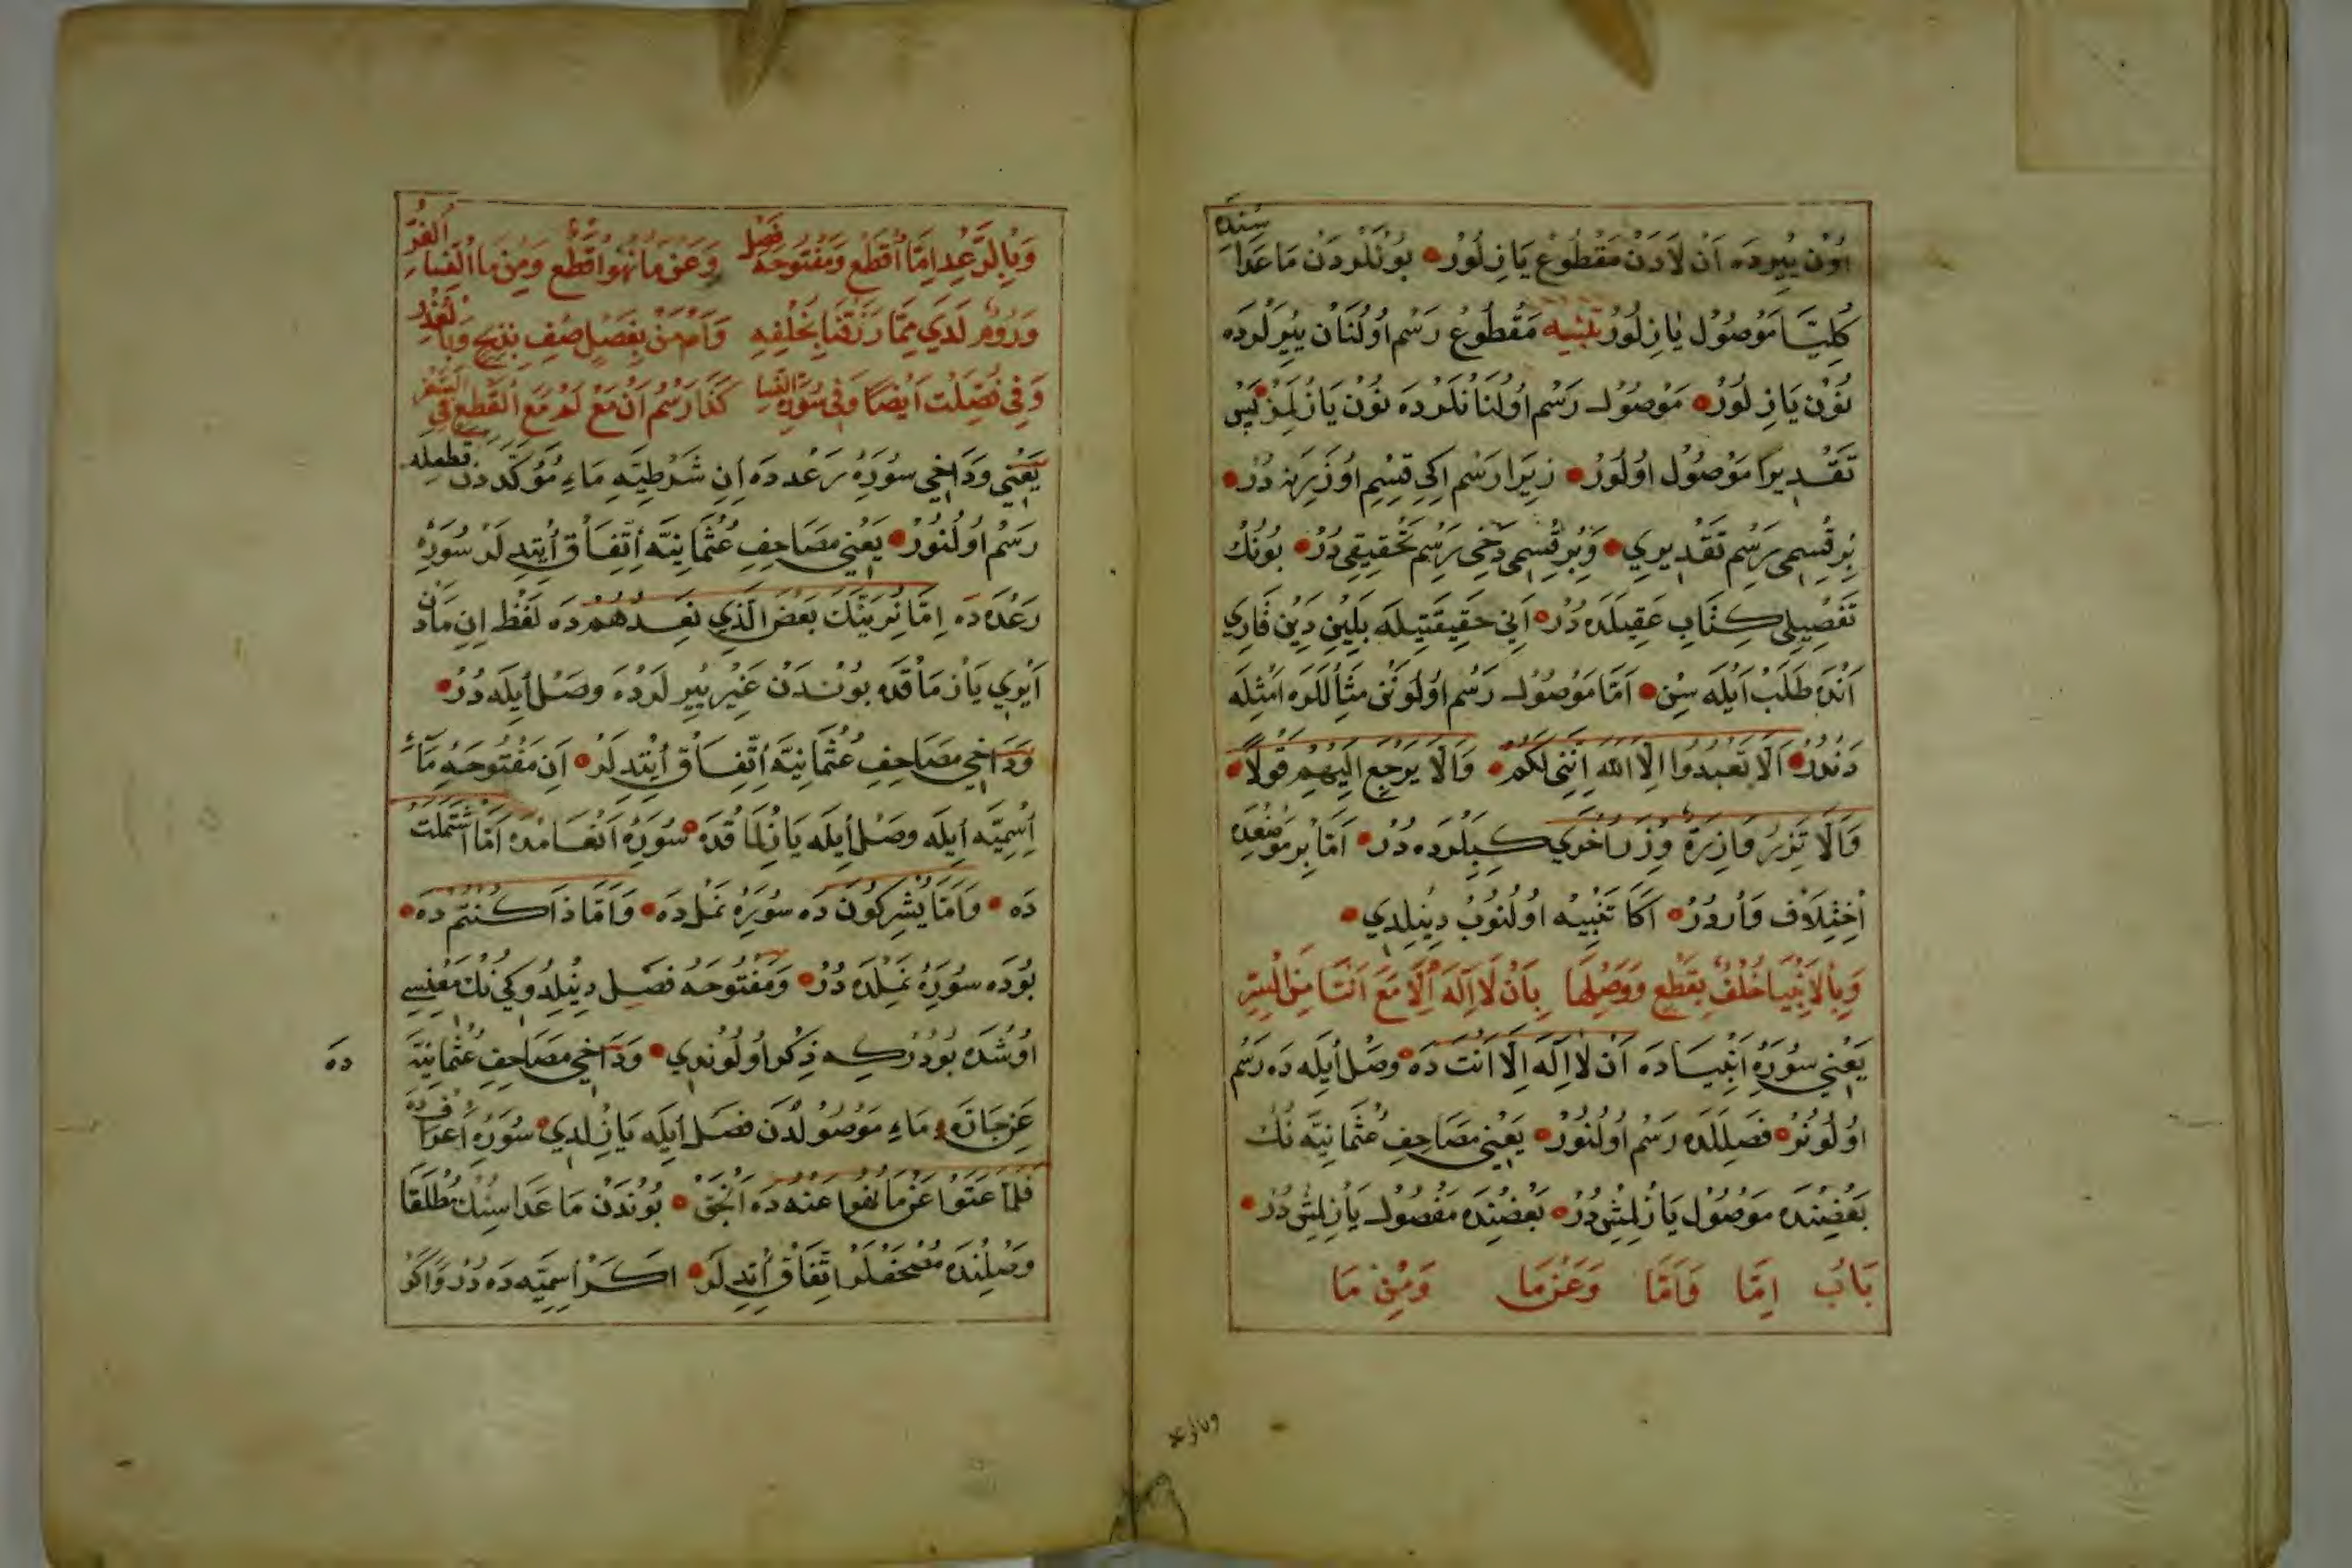 اون ييرده ان لادن مقطوع يازلور بونلردن ماعداسنده
كليا موصول يازلور تنبيه مقطوع رسم اولنان ييرلرده
نون يازلور موصول رسم اولنانلرده نون يازلمز پس
تقديرا موصول اولور زيرا رسم اكي قسم اوزرينه در
بر قسمي رسم تقديري و بر قسمي دخي رسم تحقيقي در بونك
تفصيلي كتاب عقيلده در اني حقيقتيله بلين دين قاري
انده طلب ايله سن اما موصول رسم اولونن مثاللره امثله
دندر الا تعبدوا الا الله انني لكم والا يرجع اليهم قولا
والا تزر وازرة وزر اخرى كبيلرده در اما بر موضعده
اختلاف واردر اكا تنبيه اولنوب دينلدي
وبالانبيا خلف بقطع ووصلها بان لا اله الا مع انتا من
يعني سورة انبياده ان لا اله الا انت ده وصل ايله ده رسم
اولونو فصلله ده رسم اولنور يعني مصاحف عثمانيه نك
بعضنده موصول يازلمش در بعضنده مفصول يازلمش در
باب اما واما وعن ما ومن ما
وبالرعد اما اقطع ومفتوحه فصل وعن ما نهوا قطع ومن ما النساء
وروم لدي مما رزقنا بخلفه وام من بفصل صف بذبح
وفي فصلت ايضا وفي سورة النسا كذا رسم ان مع لم مع القطع في
يعني ودخي سورة رعدده ان شرطيه ماء مؤكددن قطعله
رسم اولنور يعني مصاحف عثمانيه اتفاق ايتديلر سورة
رعدده اما نرينك بعض الذي نعدهم ده لفظ ان مادن
ايري يازمقده بوندن غير ييرلرده وصل ايله در
ودخي مصاحف عثمانيه اتفاق ايتديلر ان مفتوحه ماء
اسميه ايله وصل ايله يازلمقده سورة انعامده اما اشتملت
ده واما يشركون ده سورة نمل ده واما ذا كنتم ده
بوده سورة نملده در ومفتوحه فصل دينلدوكي نك معنيسي
اوشده بودركه ذكر اولوندي ودخي مصاحف عثمانيه
ده
عن جاره ماء موصولدن فصل ايله يازلدي سورة اعرافده
فلما عتوا عن ما نهوا عنه ده انجق بوندن ماعداسنك مطلقا
وصلنده مصحفلر اتفاق ايتديلر اكر اسميه ده در واكر